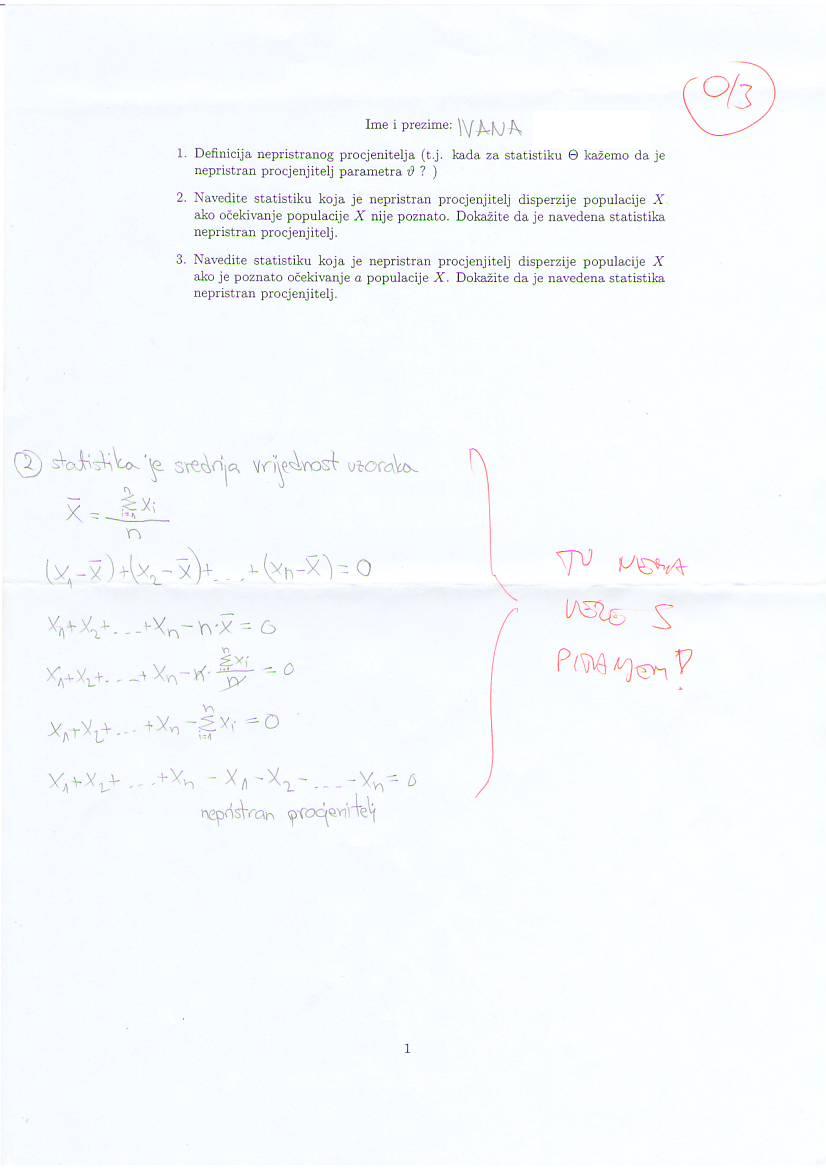 0/3
Ime i prezime: IVANA
1. Definicija nepristranog procjenitelja (t.j. kada za statistiku Θ kažemo da je
nepristran procjenjitelj parametra ϑ ? )
2. Navedite statistiku koja je nepristran procjenjitelj disperzije populacije X
ako očekivanje populacije X nije poznato. Dokažite da je navedena statistika
nepristran procjenitelj.
3. Navedite statistiku koja je nepristran procjenjitelj disperzije populacije X
ako je poznato očekivanje a populacije X. Dokažite da je navedena statistika
nepristran procjenitelj.
② statistika je srednja vrijednost uzoraka
X̄ = \frac{\sum_{i=1}^{n} x_i}{n}
(x₁-x̄)+(x₂-x̄)+...+(xₙ-x̄)=0
x₁+x₂+...+xₙ-n·x̄=0
x₁+x₂+...+xₙ-n·\frac{\sum_{i=1}^{n} x_i}{n}=0
x₁+x₂+...+xₙ-\sum_{i=1}^{n} x_i=0
x₁+x₂+...+xₙ-x₁-x₂-...-xₙ=0
nepristran procjenitelj
TU NEMA
VEZE S
PITANJEM!
1